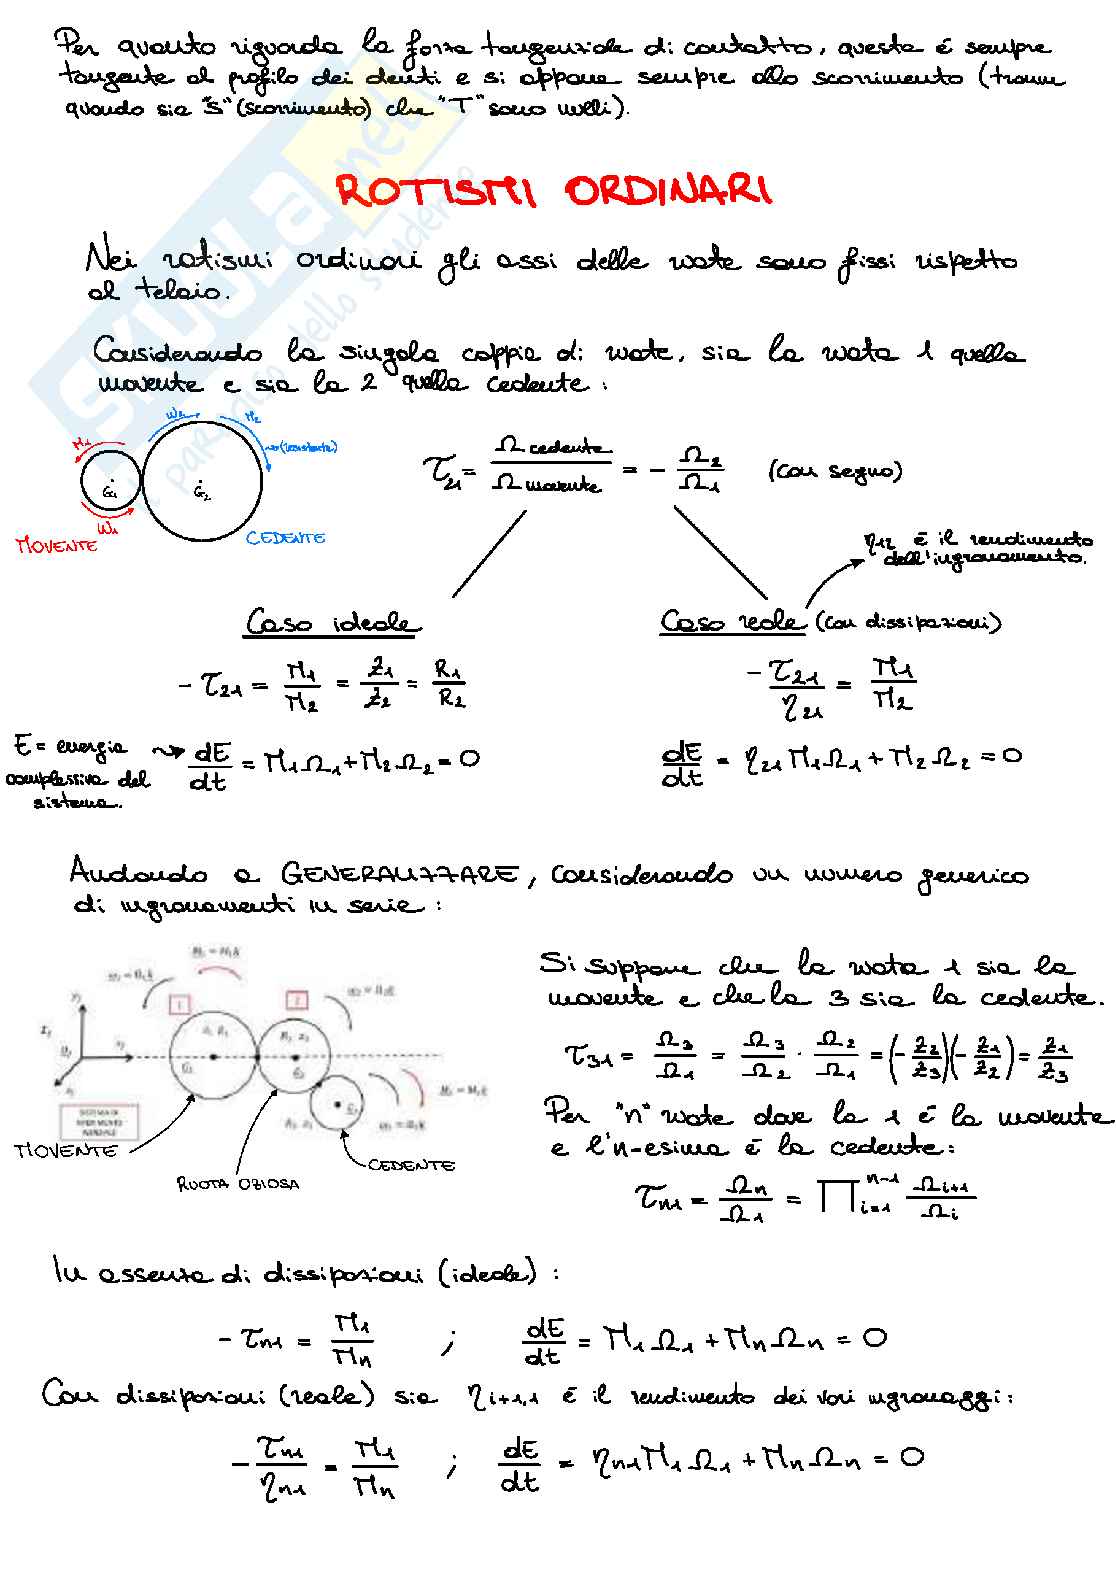 Per quanto riguarda la forza tangenziale di contatto, questa é sempre
tangente al profilo dei denti e si oppone sempre allo scorrimento (tranne
quando sia "s" (scorrimento) che "T" sono nulli).
ROTISMI ORDINARI
Nei rotismi ordinari gli assi delle ruote sono fissi rispetto
al telaio.
Considerando la singola coppia di ruote, sia la ruota 1 quella
movente e sia la 2 quella cedente:
M1 ω2 M2 (resistente)
G1 G2
ω1
MOVENTE CEDENTE
τ21 = Ω cedente / Ω movente = - Ω2/Ω1 (con segno)
η12 é il rendimento
dell'ingranamento.
Caso ideale
- τ21 = M1/M2 = Z1/Z2 = R1/R2
E = energia
complessiva del
sistema.
dE/dt = M1Ω1 + M2Ω2 = 0
Caso reale (con dissipazioni)
- τ21/η21 = M1/M2
dE/dt = η21 M1Ω1 + M2Ω2 = 0
Andando a GENERALIZZARE, considerando un numero generico
di ingranamenti in serie:
1 2
SISTEMA DI RIFERIMENTO INERZIALE
MOVENTE
RUOTA OZIOSA
CEDENTE
Si suppone che la ruota 1 sia la
movente e che la 3 sia la cedente.
τ31 = Ω3/Ω1 = Ω3/Ω2 · Ω2/Ω1 = (- Z2/Z3)(- Z1/Z2) = Z1/Z3
Per "n" ruote dove la 1 é la movente
e l'n-esima é la cedente:
τn1 = Ωn/Ω1 = ∏ i=1 n-1 Ωi+1/Ωi
In assenza di dissipazioni (ideale):
- τn1 = M1/Mn ; dE/dt = M1Ω1 + MnΩn = 0
Con dissipazioni (reale) sia ηi+1,i é il rendimento dei vari ingranaggi:
- τn1/ηn1 = M1/Mn ; dE/dt = ηn1M1Ω1 + MnΩn = 0